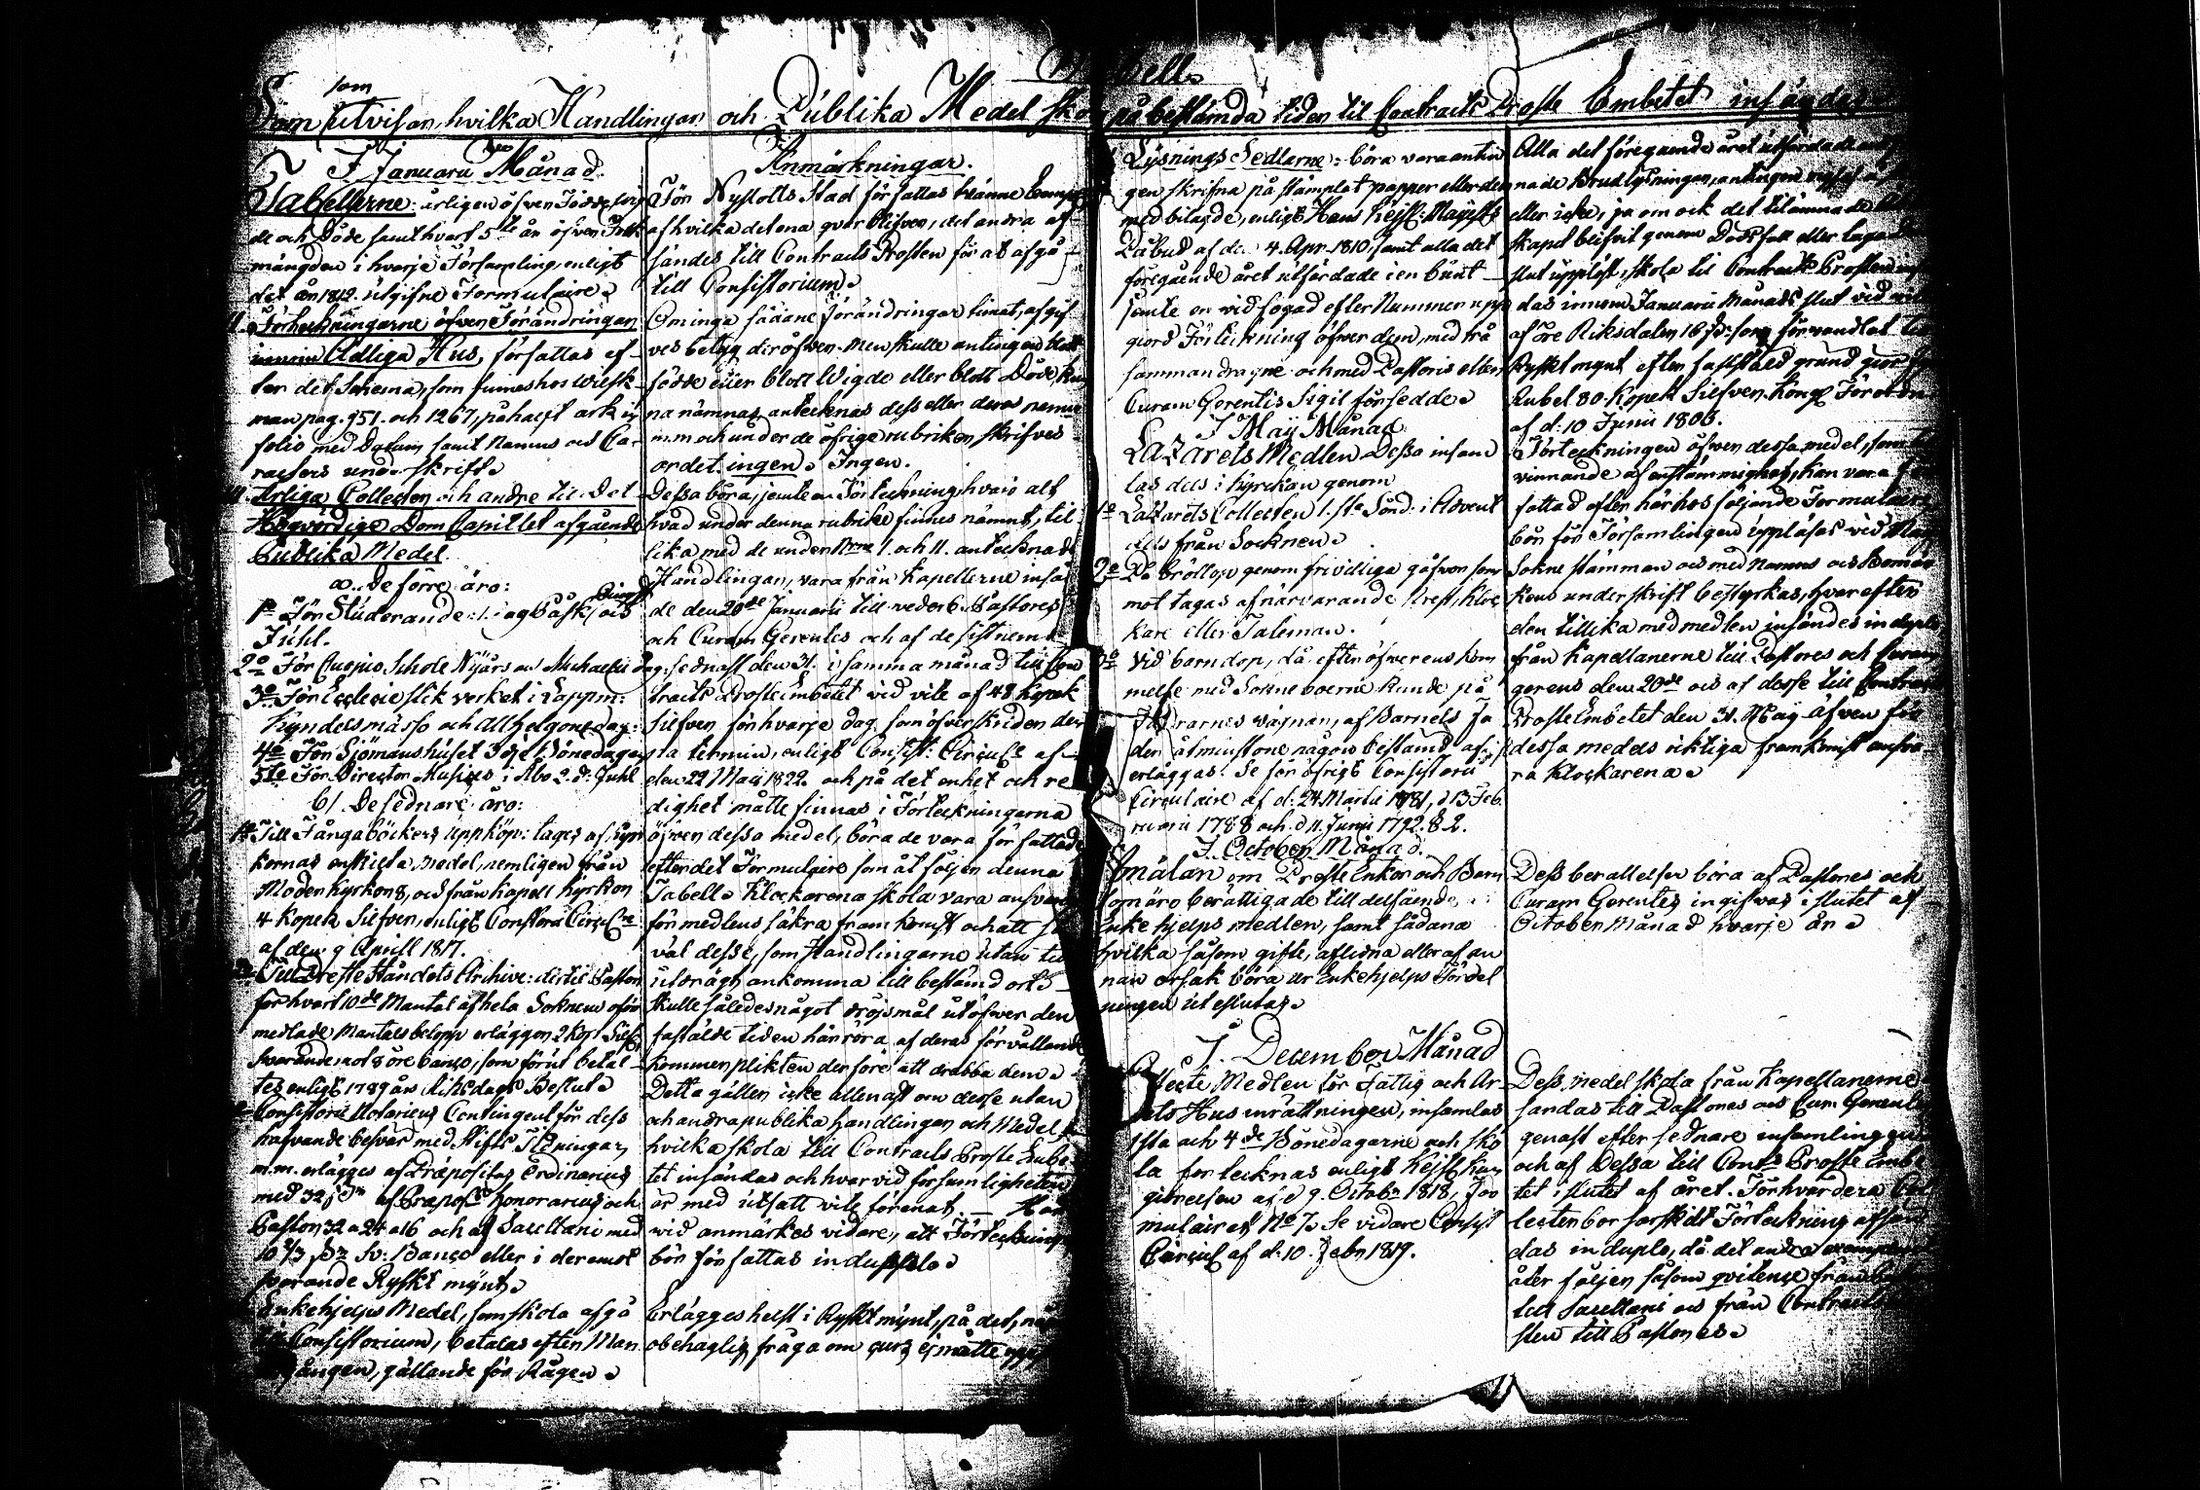 Tabell
som
Som utvisar, hvilka Handlingar och Publika Medel skola på bestämda tiden til Contracts Prosta Embetet insändas
I Januarii Månad.
Tabellerne: årligen öfver Födde Vig-
de och Döde samt hvart 5te år öfver Folk
mängden i hvarje Församling, enligt
det år 1812. utgifne Formulaire.
Förteckningarne öfver Förändringar
inom Adliga Hus, författas ef-
ter det Schema, som finnes hos Wilsk-
man pag. 951. och 1267, på halft ark in
folio med Datum samt Namns och Ca-
racters underskrift.
Årliga Collecter och andre til Det
Högvördige DomCapitlet afgående
Publika Medel
a. De förre äro:
1o För Studerande: Påsk och
Juhl.
2o För Cuopio Schole Nyårs och Michaelis dag.
3o För Ecclesiastik verket i Lappm:
Kyndelsmässo och Allhelgonedag:
4o För Sjömanshuset 3dje Bönedagen
5to För Director Musices i Åbo 2. d: Juhl
b/ De sednare äro:
Till Fångaböckers uppköp: tages af kyr
kornas enskilta medel, nemligen från
Moderkyrkon 8, och från Kapell kyrkon
4 Kopek Silfver, enligt Consistorii Circulaire
af den 9 April 1817.
Till Preste Ståndets Archive: dertil Pastor
för hvart 10de Mantal af hela Soknens oför
medlade Mantals belopp erlägger 2 Kop: Silf:
svarande mot 8 öre banco, som förut betal-
tes enligt 1789 års Riksdags Beslut.
Consistorii Notaries Contingent för dess
hafvande besvär med Stifts Tidningar
m.m. erlägges af Præpositus Ordinarius
med 32 af Præpos: honorarius och
Pastor 32 a 24 a 16 och af Sacellani med
10 2/3 Sv: Banco eller i deremot
svarande Ryskt mynt.
Enkehjelps Medel, som skola afgå
till Consistorium, betalas efter Mar
gången, gällande för Rågen.
Anmärkningar.
För Nystotts Stad författas tvänne Exempl
af hvilka det ena qvar blifver, det andra af-
sändes till Contracts Prosten för at afgå
till Consistorium.
Om inga sådane förändringar timat, afgif
ves betyg deröfver. Men skulle antingen blott
födde eller blott Wigde eller blott Döde kun
na nämnas, antecknas dess eller deras namn
m.m. och under de öfriga rubriker, skrifves
ordet: ingen. Ingen.
Dessa böra, jemte en Förteckning, hvari alt
hvad under denna rubrike finnes nämnt, til
lika med de under Nrne 1. och 11. antecknade
Handlingar, vara från Kapellerne insän
de den 20de Januarii till vederb. Pastores
och Curam Gerentes och af de sistnemde
sednast den 31. i samma månad till Con
tracts Prosteembetet vid vite af 48 Kopek
Silfver för hvarje dag, som öfverskrider den
na termin, enligt Consist: Circulr af
den 22 Maii 1822. och på det enhet och re
dighet måtte finnas i Förteckningarna
öfver dessa medel, böra de vara författade
efter det Formulaire som åtföljer denna
Tabell. Klockarena skola vara ansvar
för medlens säkra framkomst och att så
väl desse, som Handlingarne utan til
utdrägt ankomma till bestämd ort.
Skulle således något dröjsmål utöfver den
fastälde tiden härröra af deras förvållande
kommer plikten derföre att drabba dem.
Detta gäller icke allenast om desse utan
och andra publika handlingar och Medel,
hvilka skola till Contracts Proste Embe
tet insändas och hvarvid försumligheten
är med utsatt vite förenat. Här
vid anmärkes vidare, att Förteckning
bör författas in duplo.
Erlägges helst i Ryskt mynt, på det, når
obehaglig fråga om curs ej måtte upp
Lysnings Sedlarne: böra vara antin
gen skrifna på stämplat papper eller der
med bilagde, enligt Hans Kejs: Majests
Påbud af den 4. Apr 1810, samt alla det
föregående året utfärdade i en bunt
jemte en vidfogad efter Nummer upp
giord Förteckning öfver dem, med trå
sammandragne och med Pastoris eller
Curam Gerentis Sigil försedde.
I Maij Månad
Lazarets Medlen. Dessa insam
las dels i kyrckan genom
1o Lazarets Collecten 1.sta Sönd: i Advent
dels från Socknen.
2o På Bröllop genom frivilliga gåfvor som
mottagas af närvarande Prest, Kloc
kare eller Taleman.
3o Vid barndop, då efter öfverens kom
melse med Sokneboerne kunde på
Faddrarnes vägnar, af Barnets Fa
der åtminstone någon bestämd af
erläggas. Se för öfrigt Consistorii
Circulaire af d: 24 Martii 1781, d 13 Feb
ruarii 1788 och d 11. Junii 1792. § 2.
I October Månad.
Anmälan om Preste Enkor och Barn
som äro berättigade till delsående
Enkehjelps medlen, samt sådana
hvilka såsom gifte, aflidna eller af an
nan orsak böra ur Enkehjelps Fördel
ningen uteslutas.
I. December Månad
Collecte Medlen för Fattig och Ar
bets Hus inrättningen, insamlas
1sta och 4de Bönedagarne och sko
la förtecknas enligt Kejs: Kun
görelsen af d 9. Octobr 1818, For
mulairet No 7. Se vidare Consist
Circul af d: 10. Febr 1819.
Alla det föregående året utfärdade
nade Brudlysningar, antingen vigsel
eller icke, ja om ock det tilämnade
skapet blifvit genom Dödsfall eller laga
slut upplöst, skola til Contracts Prosten
das innom Januarii Månads slut vid vite
af tre Riksdaler 16 som förvandlat til
Ryskt mynt efter fastställd grund giör
Rubel 80. Kopek Silfver. Kongl Förordn
af d: 10 Junii 1803.
Förteckningen öfver dessa medel,
vinnande af enstämmighet, kan vara
fattad efter härhos följande Formulaire
bör för Församlingen uppläsas vid
Sokne stämman och med Namns och Bomär
kens underskrift bestyrkas, hvarefter
den tillika med medlen insändes in duplo
från Kapellanerne till Pastores och Curam
gerens den 20de och af desse till Contracts
Proste Embetet den 31. Maij. Äfven för
dessa medels riktiga framkomst ansva
ra Klockarena.
Dess berättelser böra af Pastores och
Curam Gerentes ingifvas i slutet af
October Månad hvarje år.
Dess medel skola från Kapellanerne
sändas till Pastores och Curam Gerentes
genast efter sednare insamlingen
och af Dessa till Contr: Proste Embe
tet i slutet af året. För hvardera Col
lecten bör särskildt Förteckning afsän
das in duplo, då det andra exemplaret
åter följer såsom qvitence från
till Sacellani och från Contracts
sten till Pastores.